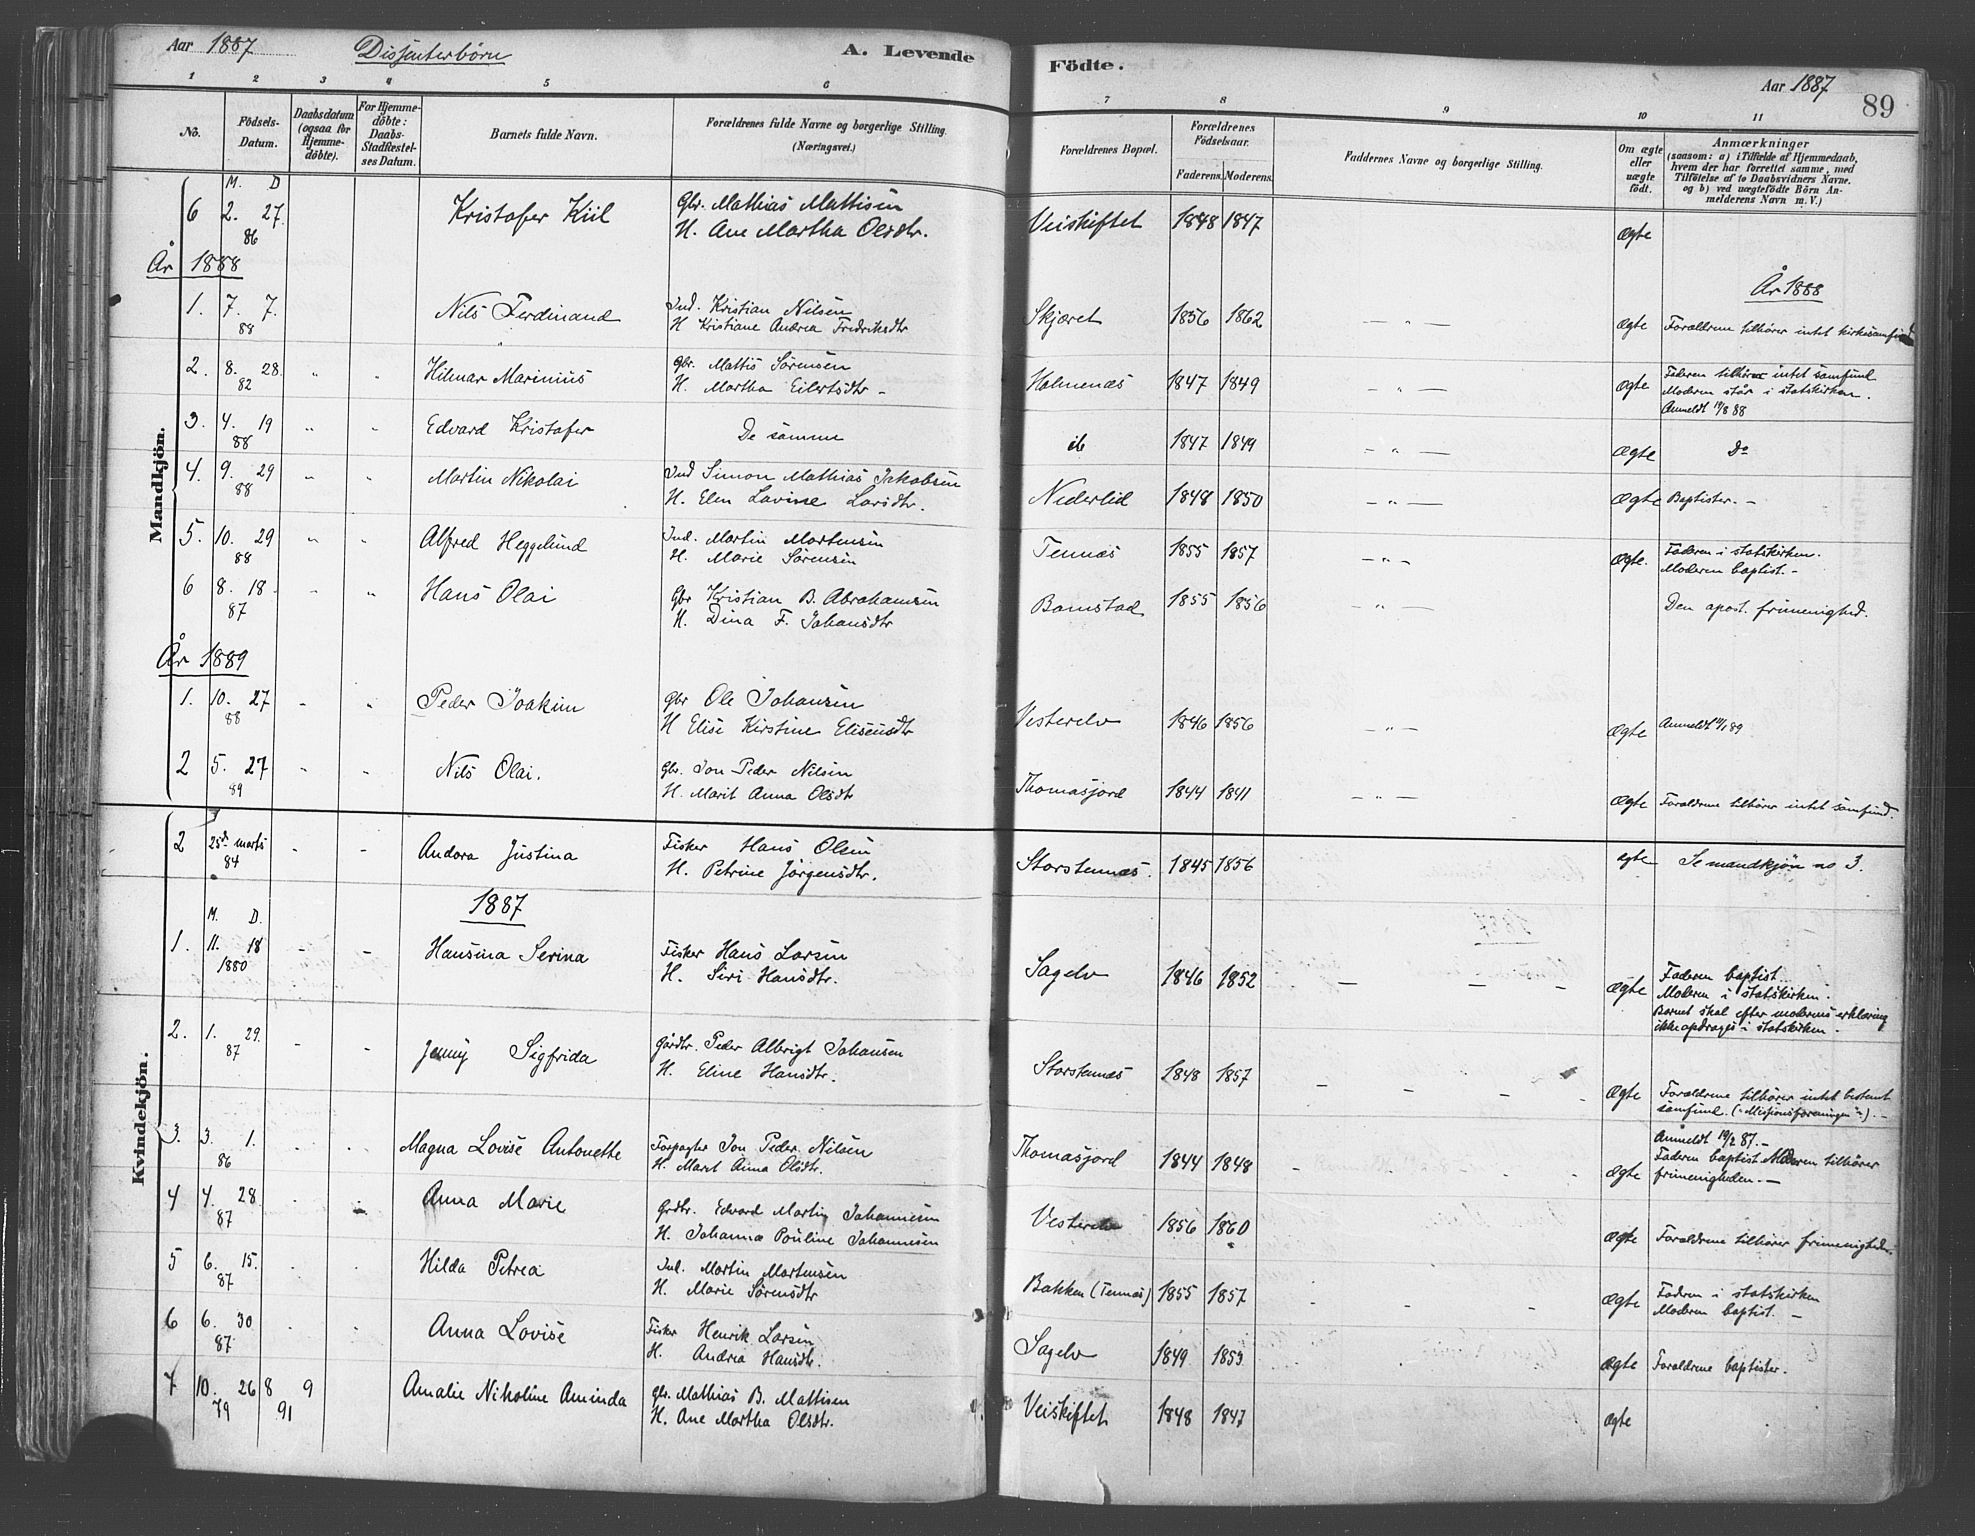 Aar 1887 Dissenterbørn A. Levende Födte. Aar 1887 89
1 2 3 4 5 6 7 8 9 10 11
No. Födsels-Datum. Daabsdatum (ogsaa for Hjemmedöbte). For Hjemmedöbte: Daabs-Stadfæstelses Datum. Barnets fulde Navn. Forældrenes fulde Navne og borgerlige Stilling. (Næringsvei.) Forældrenes Bopæl. Forældrenes Födselsaar. Faderens. Moderens. Faddernes Navne og borgerlige Stilling. Om ægte eller uægte födt. Anmærkninger (saasom: a) i Tilfælde af Hjemmedaab, hvem der har forrettet samme, med Tilföielse af to Daabsvidners Navne, og b) ved uægtefödte Börn Anmelderens Navn m. V.)
Mandkjön.
M. D
6 2. 27. 86 Kristofer Kiil Gbr. Mathias Mattisen Veiskiftet 1848 1847 ægte
H. Ane Martha Olsdtr.
År 1888 År 1888
1. 7. 7. 88 Nils Ferdinand Ind. Kristian Nilsen Skjæret 1856 1862 — " — ægte Forældrene tilhører intet kirkesamfund
H Kristiane Andrea Fredriksdtr
2. 8. 28. 82 " " Hilmar Marinius Gbr. Mattis Sørensen Holmenæs 1847 1849 — " — ægte Faderen tilhører intet samfund
H. Martha Eilertsdtr - Moderen står i statskirken.
Anmeldt 19/8 88
3. 4. 19 88 " " Edvard Kristofer De samme ib 1847 1849 — " — ægte Do
4. 9. 29 88 " " Martin Nikolai Ind Simon Mathias Jakobsen Nederlid 1848 1850 — " — ægte Baptister. —
H. Elen Lovise Larsdtr.
5. 10. 29 88 " " Alfred Heggelund Ind. Martin Mortensen Tennæs 1855 1857 — " — ægte. Faderen i statskirken.
H. Marie Sørensen Moderen baptist. —
6 8. 18. 87 " " Hans Olai Gbr Kristian B. Abrahamsen Bomstad 1855 1856 — " — Den apost. frimenighed.
H. Dina F. Johansdtr
År 1889
1. 10. 27 88 - " Peder Joakim Gbr Ole Johansen Vesterelv 1846 1856 — " — ægte Anmeldt 89
H Elise Kirstine Elisensdtr
2 5. 27 89 - - Nils Olai. Gbr. Jon Peder Nilsen Thomasjord 1844 1841 — " — ægte Forældrene tilhører intet samfund.
H. Marit Anna Olsdtr
Kvindekjön.
2 25de marts 84 - - Andora Justina Fisker Hans Olsen Storstennæs. 1845 1856 egte Se mandkjøn no 3.
H. Petrine Jørgensdtr.
1887
M. D.
1. 11. 18 1880 - - Hansina Serina Fisker Hans Larsen Sagelv 1846 1852 — — — ægte Faderen baptist
H. Siri Hansdtr. Moderen i statskirken.
Barnet skal efter moderens erklæring
ikke opdrages i statskirken.
2. 1. 29. 87 - - Jenny Sigfrida Gårdbr. Peder Albrigt Johansen Storstennæs 1848 1857 - - - ægte Forældrene tilhører intet bestemt
H. Eline Hansdtr. samfund. ("Missionsforeningen"). -
3. 3. 1. 86 Magna Lovise Antonette Forpagter Jon Peder Nilsen Thomasjord 1844 1848 ægte Anmeldt 19/2 87. —
H. Marit Anna Olsdtr. Faderen baptist Moderen tilhører
frimenigheden. —
4 4. 28 87 Anna Marie Grdbr. Edvard Martin Johannesen Vesterelv 1856 1860 ægte Forældrene tilhører frimenigheden
H. Johanna Pouline Johannesen
5 6. 15. 87 Hilda Petrea Ind. Martin Mortensen Bakken (Tennæs) 1855 1857 ægte Faderen i statskirken
H. Marie Sørensdtr Moderen baptist. —
6 6. 30 87 Anna Lovise Fisker Henrik Larsen Sagelv 1849 1853 ægte Forældrene baptister.
H. Andrea Hansdtr.
7 10. 26 79 8 9 91 Amalie Nikoline Aminda Gbr. Mathias B. Mattisen Veiskiftet 1848 1847 ægte
H. Ane Martha Olsdtr.